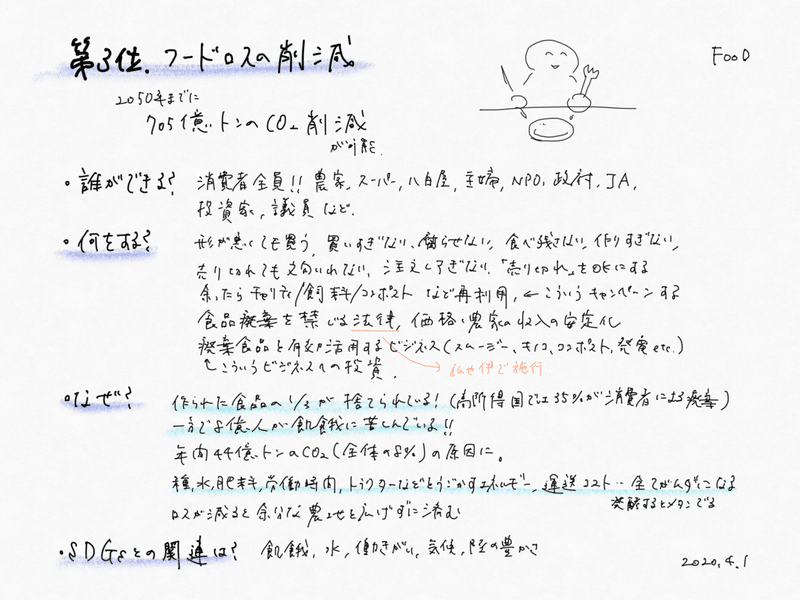 第3位. フードロスの削減
FOOD
2050年までに
705億トンのCO2削減
が可能.
・誰ができる? 消費者全員!! 農家, スーパー, 八百屋, 主婦, NPO, 政府, JA,
投資家, 議員 など.
・何をする? 形が悪くても買う, 買いすぎない, 腐らせない, 食べ残さない, 作りすぎない,
売り切れても文句いれない, 注文しすぎない, 「売り切れ」をOKにする
余ったらチャリティ/飼料/コンポスト など再利用, ←こういうキャンペーンする
食品廃棄を禁じる法律, 価格・農家の収入の安定化
廃棄食品を有効活用するビジネス(スムージー, キノコ, コンポスト, 発電 etc.)
こういうビジネスへの投資.
仏や伊で施行
・なぜ? 作られた食品の1/3が捨てられている! (高所得国では35%が消費者による廃棄)
一方で8億人が飢餓に苦しんでいる!!
年間44億トンのCO2(全体の8%)の原因に.
種, 水, 肥料, 労働時間, トラクターなどうごかすエネルギー, 運送コスト… 全てがムダになる
発酵するとメタンでる
ロスが減ると余分な農地を広げずに済む
・SDGsとの関連は? 飢餓, 水, 働きがい, 気候, 陸の豊かさ
2020.4.1